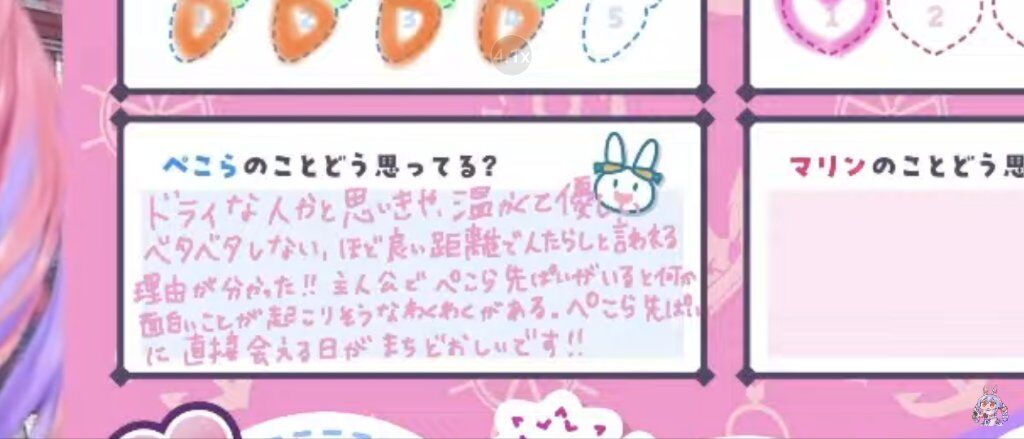 1 2 3 4 5
4.1x
1 2
ぺこらのことどう思ってる?
ドライな人かと思いきや、温かくて優し
ベタベタしない、ほど良い距離で人たらしと言われる
理由が分かった!! 主人公でぺこら先ぱいがいると何か
面白いことが起こりそうなわくわくがある。ぺこら先ぱい
に直接会える日がまちどおしいです!!
マリンのことどう思